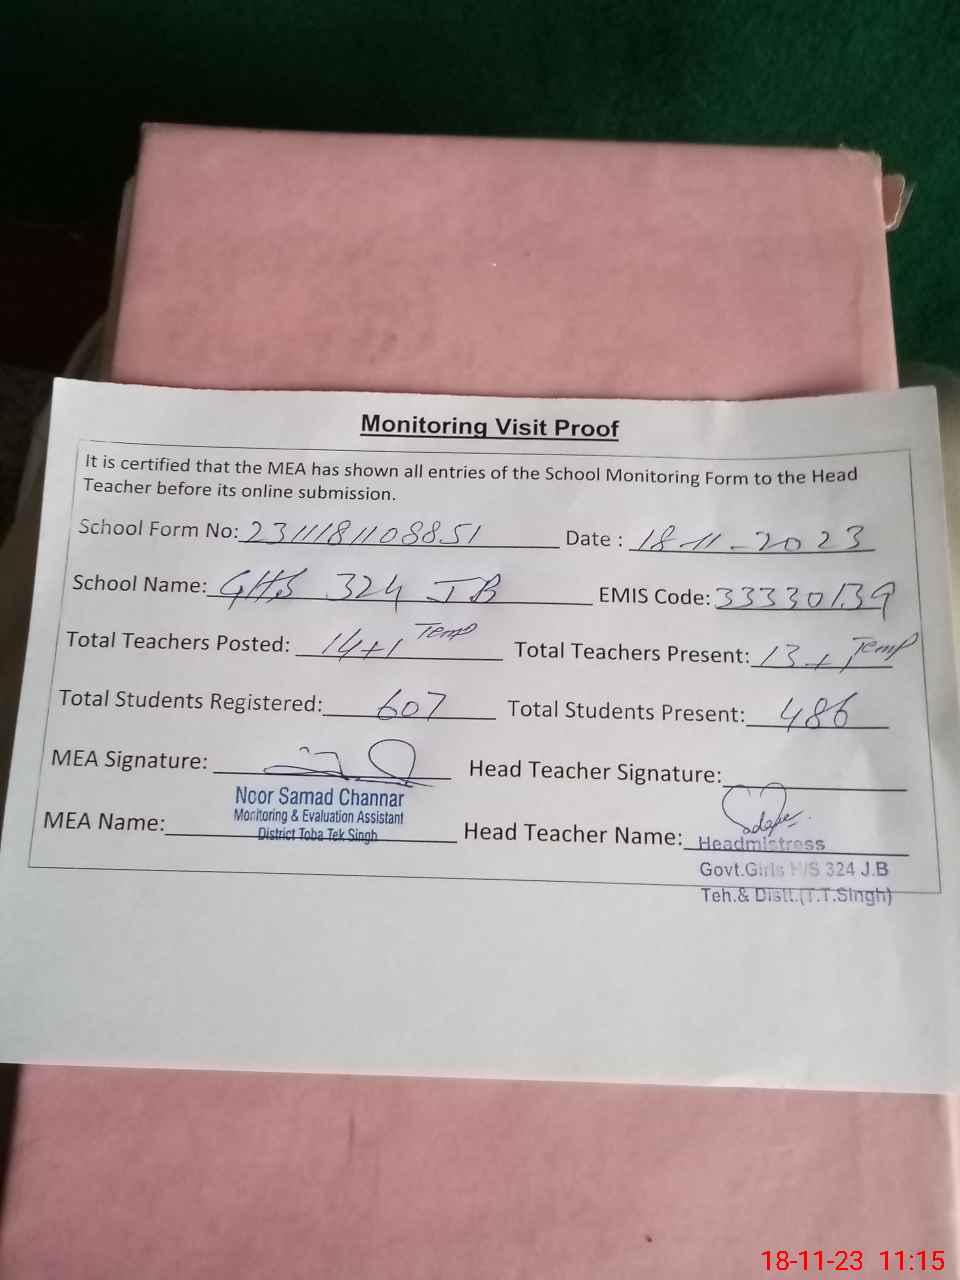 Monitoring Visit Proof
It is certified that the MEA has shown all entries of the School Monitoring Form to the Head
Teacher before its online submission.
School Form No: 2311181108851 Date : 18-11-2023
School Name: GHS 324 JB EMIS Code: 33330139
Total Teachers Posted: 14+1 Temp Total Teachers Present: 13+1 Temp
Total Students Registered: 607 Total Students Present: 486
MEA Signature: Head Teacher Signature:
Noor Samad Channar
Monitoring & Evaluation Assistant
District Toba Tek Singh
MEA Name: Head Teacher Name:
Headmistress
Govt.Girls H/S 324 J.B
Teh.& Distt.(T.T.Singh)
18-11-23 11:15